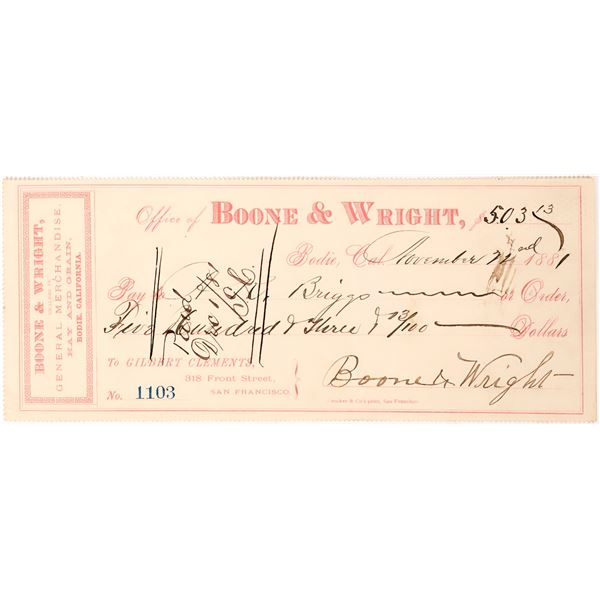 BOONE & WRIGHT,
DEALERS IN
GENERAL MERCHANDISE,
HAY AND GRAIN,
BODIE, CALIFORNIA.
Office of BOONE & WRIGHT, $503 13
Bodie, Cal. November 22nd 1881
Pay to Briggs or Order,
Five Hundred & Three & 13/100 Dollars
Paid
TO GILBERT CLEMENTS,
318 Front Street,
SAN FRANCISCO
No. 1103
Boone & Wright